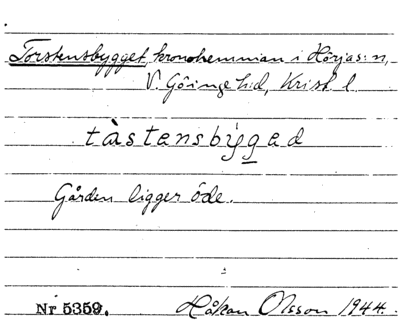 Torstensbygget, kronohemman i Hörjas:n,
V. Göinge hd, Krist l
tàstensbýged
Gården ligger öde.
Nr 5359. Håkan Olsson 1944.